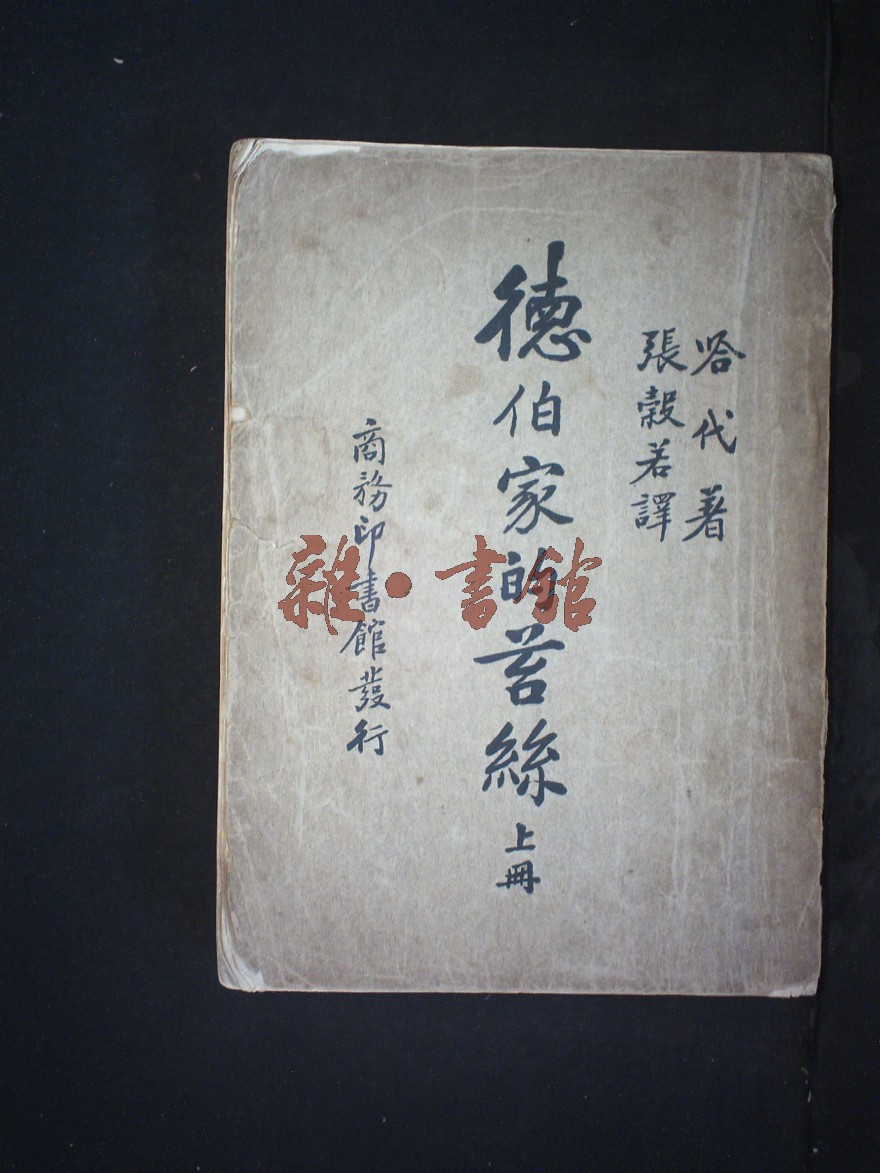 哈代著
張穀若譯
德伯家的苔絲 上冊
商務印書館發行
雜·書館